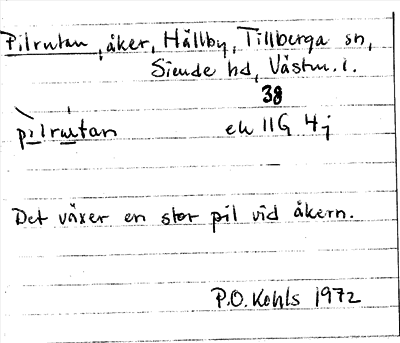 Pilrutan, åker, Hällby, Tillberga sn,
Siende hd, Västm. l.
38
pilrutan ek 11G 4j
Det växer en stor pil vid åkern.
P.O. Kohls 1972